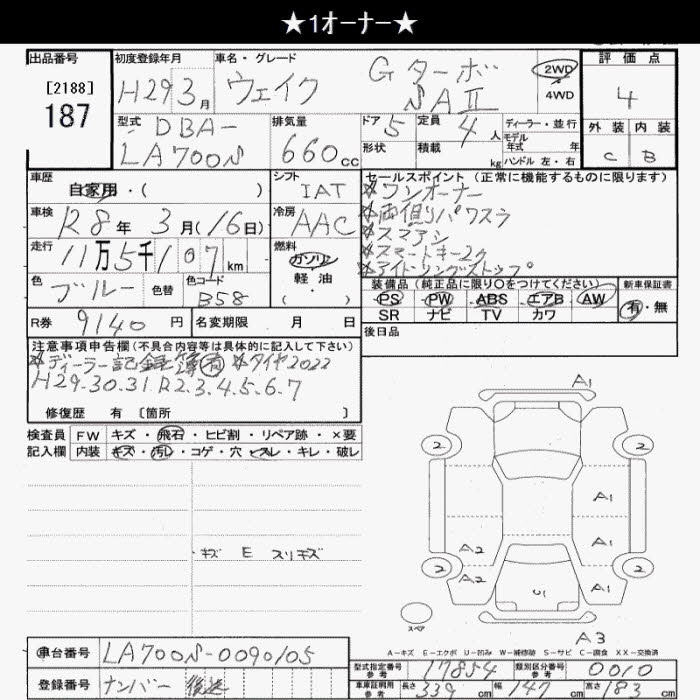 ★1オーナー★
出品番号
[2188]
187
初度登録年月
H29 3月
車名・グレード
ウェイク Gターボ SAⅡ
2WD
4WD
評価点
4
外装 内装
C B
型式
DBA-
LA700S
排気量
660cc
ドア 5
形状
定員 4人
積載 kg
ディーラー・並行
モデル
年式 年
ハンドル 左・右
車歴
自家用・( )
シフト
IAT
車検
R8年 3月(16日)
冷房
AAC
走行
11万5千107km
燃料
ガソリン
軽油
( )
色
ブルー
色替
色コード
B58
R券 9140円
名変期限 月 日
セールスポイント(正常に機能するものに限ります)
☆ワンオーナー
☆両側りパワスラ
☆スマアシ
☆スマートキー2ケ
☆アイドリングストップ
装備品(純正品に限り〇をつけてください)
PS PW ABS エアB AW
SR ナビ TV カワ
新車保証書
有・無
後日品
注意事項申告欄(不具合内容等は具体的に記入して下さい)
☆ディーラー記録簿有 ☆タイヤ2022
H29.30.31 R2.3.4.5.6.7
修復歴 有 [箇所 ]
検査員
記入欄
FW キズ・飛石・ヒビ割・リペア跡・×要
内装 キズ・汚レ・コゲ・穴・スレ・キレ・破レ
キズ E スリキズ
A1
2 2
A1
A2 A1
2 A2 U1 A1 2
スペア
A3
A-キズ E-エクボ U-凹み W-補修跡 S-サビ C-腐食 XX-交換済
車台番号 LA700S-0090105
登録番号 ナンバー 後送
型式指定番号
参考
17854
類別区分番号
参考
0010
車庫証明用
参考
長さ 339cm 幅 147cm 高さ 183cm